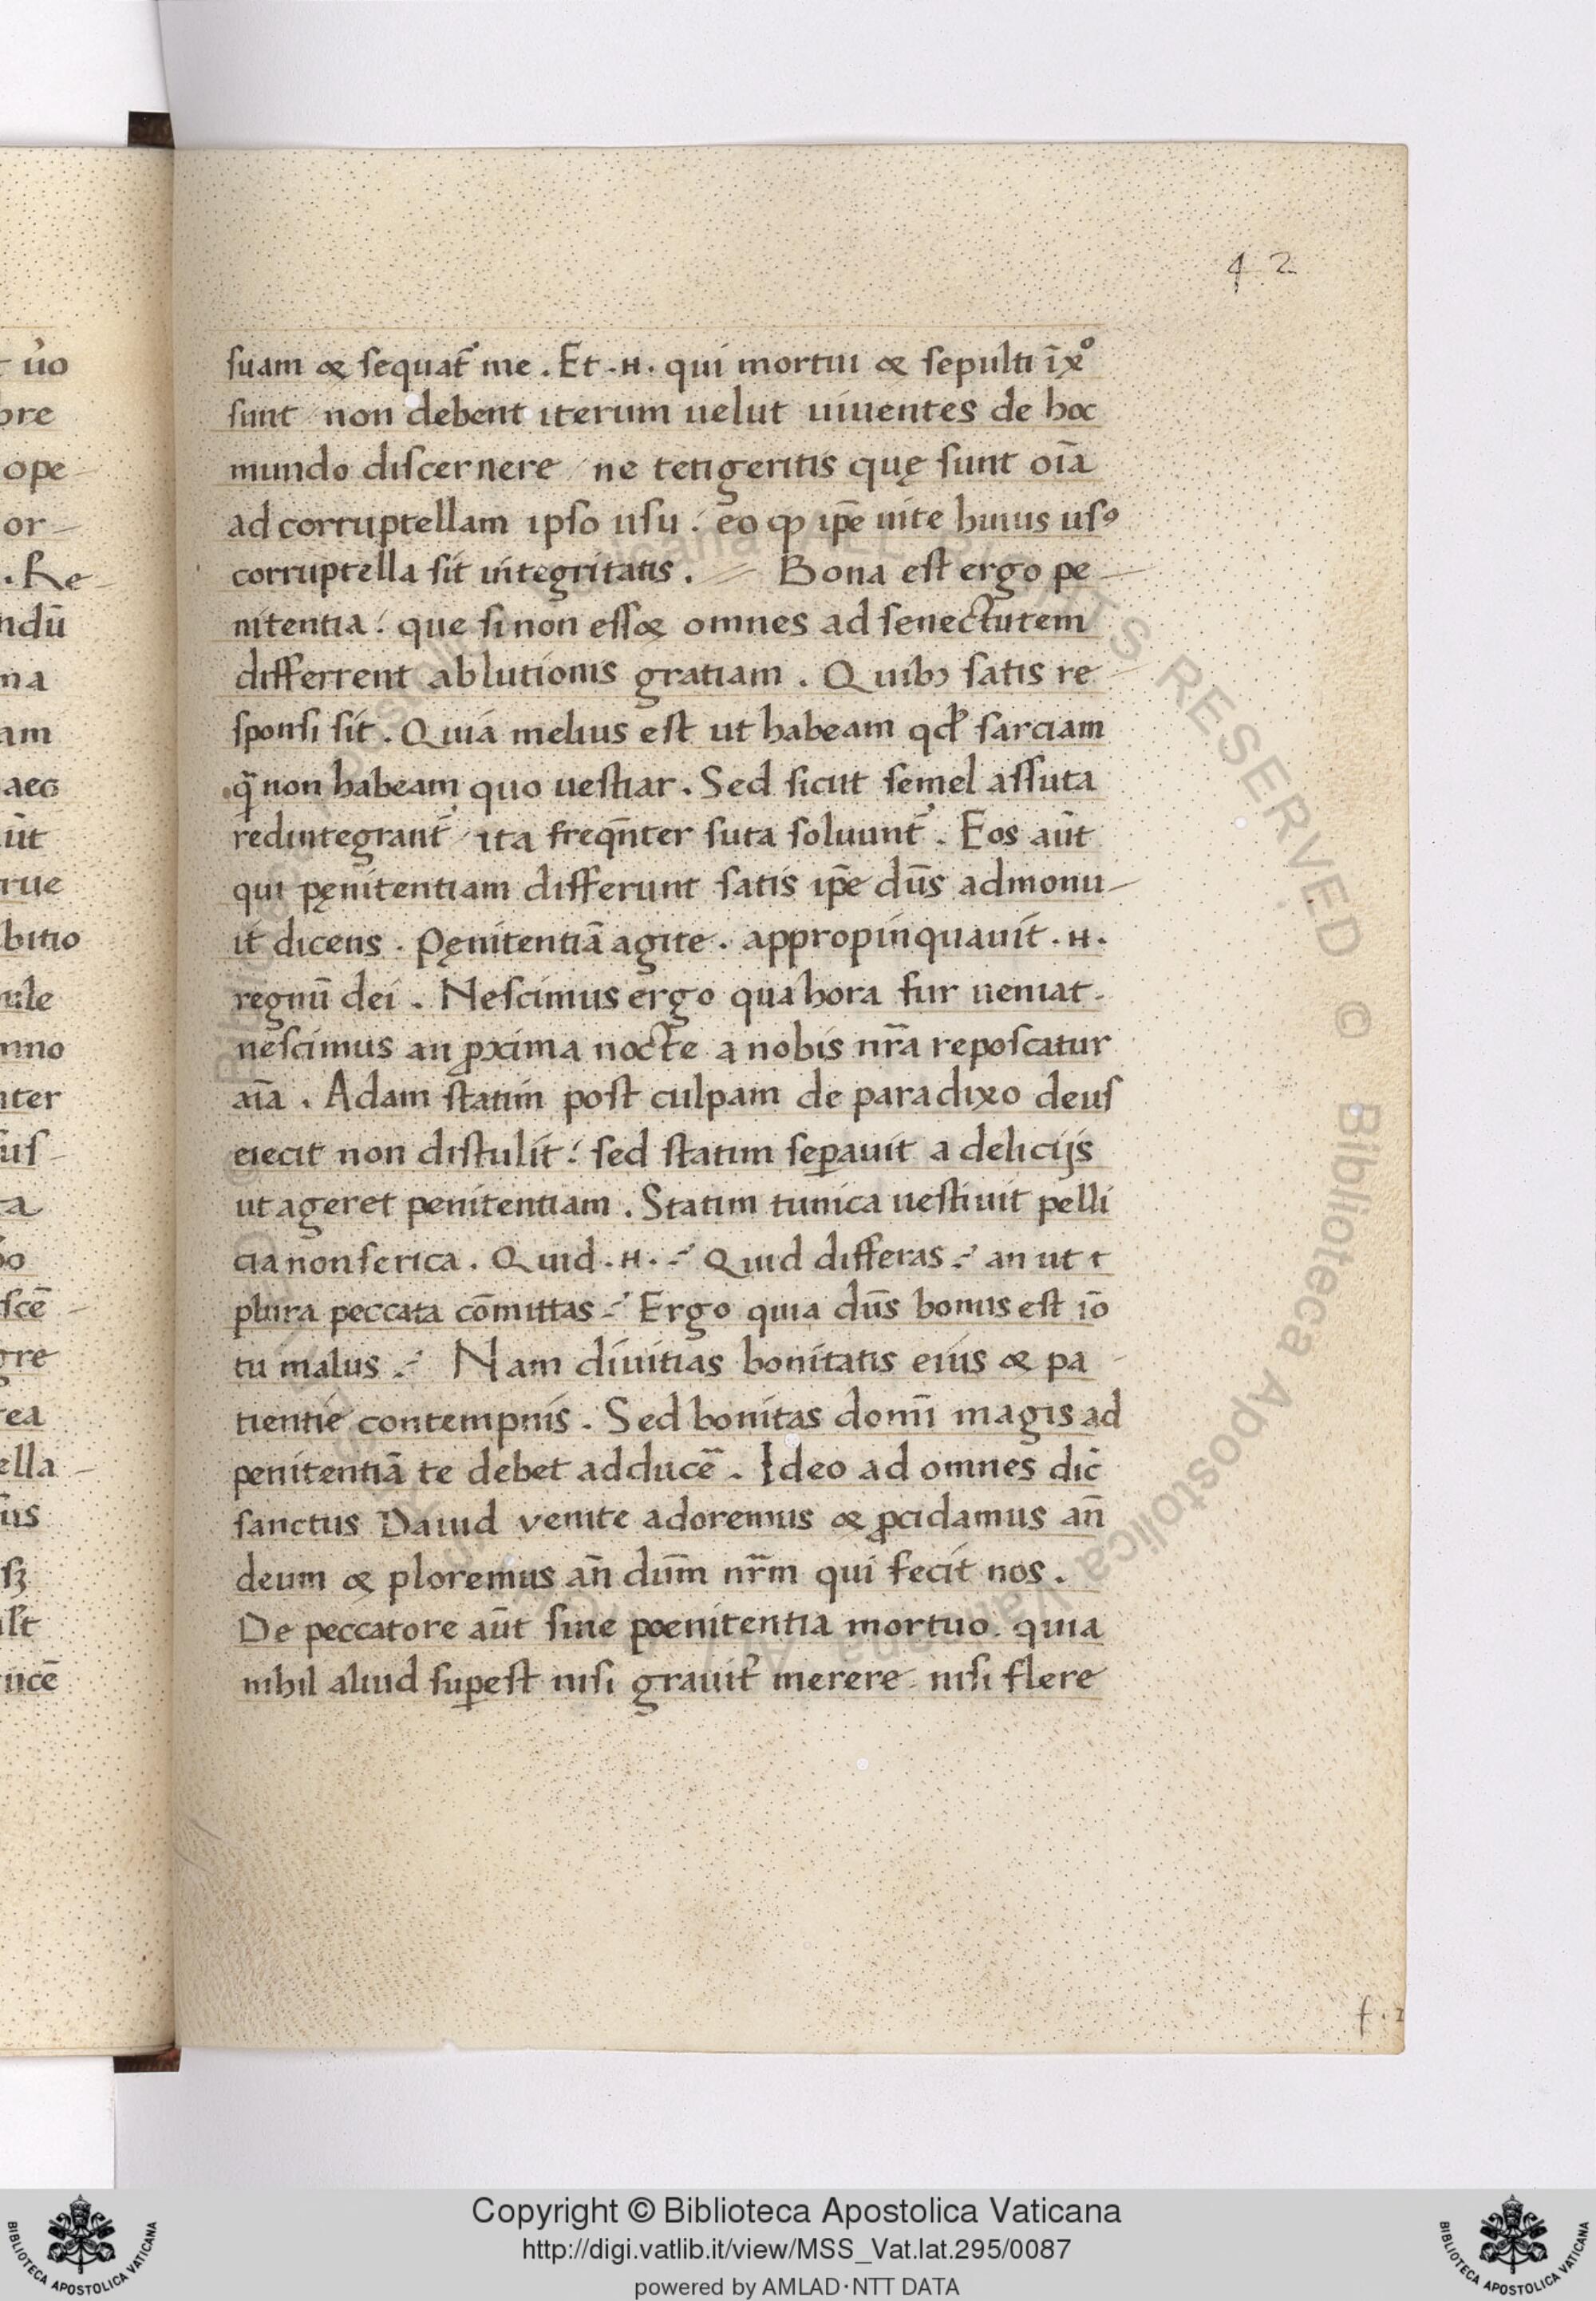 42
suam & sequat᷑ me . Et .H. qui mortui & sepulti i̅ xº
sunt / non debent iterum uelut uiuentes de hoc
mundo discernere / ne tetigeritis quę sunt oi̅a
ad corruptellam ipso usu : eo ꝙ ip̅e uite huius usꝰ
corruptella sit integritatis . Bona est ergo pe
nitentia : que si non ess& omnes ad senectutem
differrent ablutionis gratiam . Quibꝫ satis re
sponsi sit . Quia melius est ut habeam qd̕ sarciam
q̃ non habeam quo uestiar . Sed sicut semel assuta
redintegrant᷑ / ita freq̅nter suta soluunt᷑ . Eos au̅t
qui pęnitentiam differunt satis ip̅e du̅s admonu-
it dicens . Pęnitentia̅ agite . appropinquauit .H.
regnu̅ dei . Nescimus ergo qua hora fur ueniat .
nescimus an ꝓxima nocte a nobis nr̅a reposcatur
ai̅a . Adam statim post culpam de paradixo deus
eiecit non distulit : sed statim seꝑauit a delicijs
ut ageret penitentiam . Statim tunica uestiuit pelli
cia non serica . Quid .H. ? Quid differas ? an ut t
plura peccata co̅mittas ? Ergo quia du̅s bonus est io̅
tu malus ? Nam diuitias bonitatis eius & pa
tientie contempnis . Sed bonitas domi̅ magis ad
penitentia̅ te debet adduce̅ . Ideo ad omnes dic̅
sanctus Dauid venite adoremus & ꝓcidamus an̅
deum & ploremus an̅ du̅m nr̅m qui fecit nos .
De peccatore au̅t sine poenitentia mortuo . quia
nihil aliud suꝑest nisi grauit᷑ merere . nisi flere
f . 1
t u̓o
ore
ope
or-
. Re-
ndu̅
na
am
aec
u̅t
rue
bitio
ule
nno
nter
sus-
ta
sce̅
gre
rea
ella
u̅s
sꝫ
ult
uce̅
Copyright © Biblioteca Apostolica Vaticana
http://digi.vatlib.it/view/MSS_Vat.lat.295/0087
powered by AMLAD·NTT DATA
BIBLIOTECA APOSTOLICA VATICANA
BIBLIOTECA APOSTOLICA VATICANA